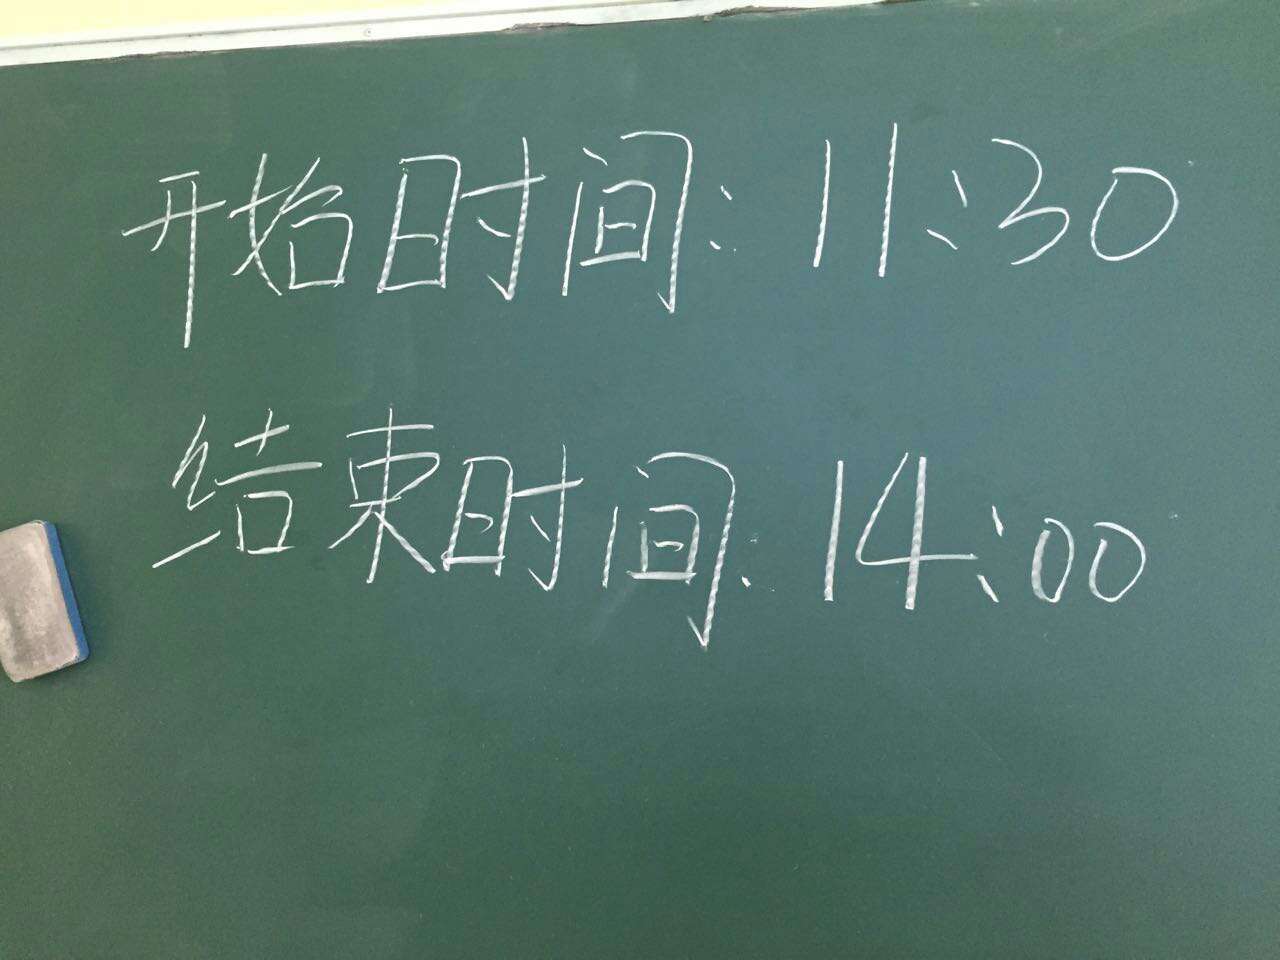 开始时间:11:30
结束时间:14:00